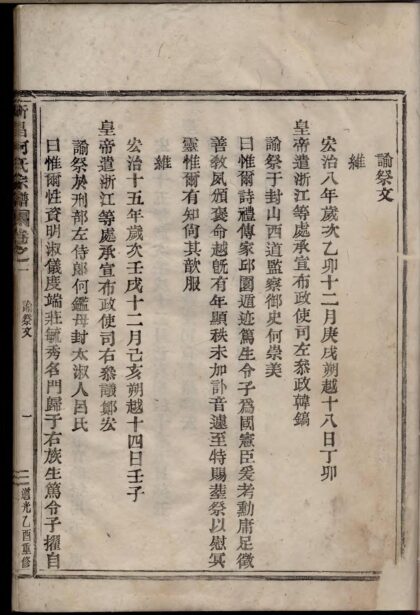 諭祭文
維
宏治八年歲次乙卯十二月庚戌朔越十八日丁卯
皇帝遣浙江等處承宣布政使司左叅政韓鎬
諭祭于封山西道監察御史何崇美
曰惟爾詩禮傳家邱園遁迹篤生令子爲國憲臣爰考勳庸足徵
善敎夙頒褒命越旣有年顯秩未加訃音遽至特賜葬祭以慰冥
靈惟爾有知尙其歆服
維
宏治十五年歲次壬戌十二月己亥朔越十四日壬子
皇帝遣浙江等處承宣布政使司右叅議鄭宏
諭祭於刑部左侍郎何鑑母封太淑人呂氏
曰惟爾性資明淑儀度端莊毓秀名門歸于右族生篤令子擢自
新昌何氏宗譜 卷之二 諭祭文 一 道光乙酉重修